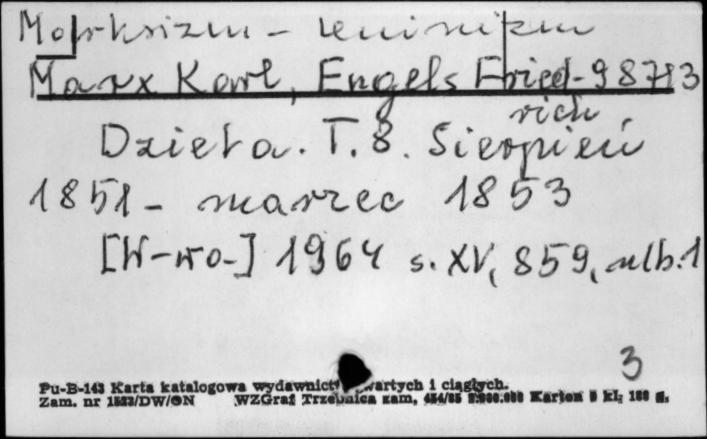 Marksizm - leninizm
Marx Karl, Engels Fried- 98793
rich
Dzieła. T. 8. Sierpień
1851 - marzec 1853
[W-wo-] 1964 s. XV, 859, nlb. 1
3
Pu-B-143 Karta katalogowa wydawnictw zwartych i ciągłych.
Zam. nr /DW/ON WZGraf Trzebnica zam. Karton kl.